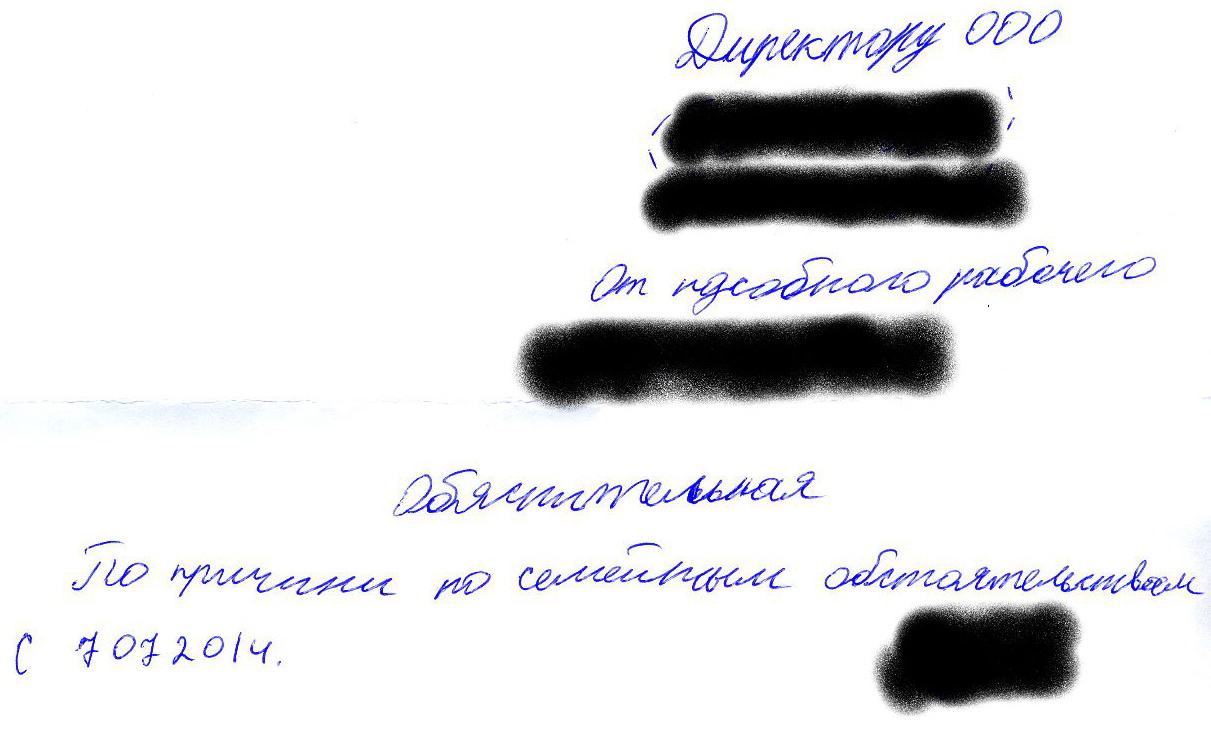 Директору ООО
От пдсобного рабочего
Обяснительная
По причини по семейным обстоятельствам
С 7 07 2014.